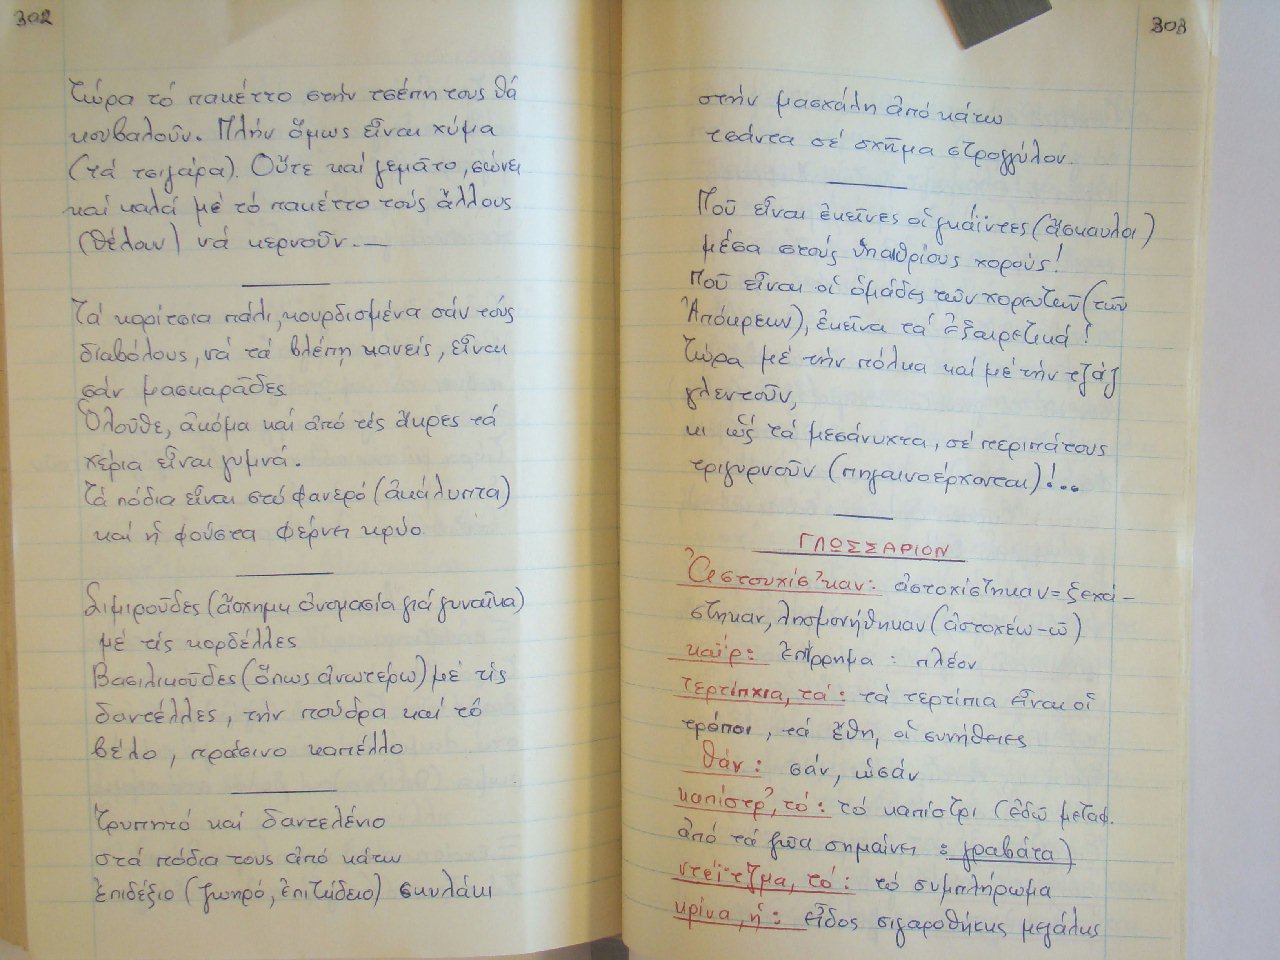 302
Τώρα τό πακέττο στήν τσέπη τους θά
κουβαλοῦν. Πλήν ὅμως εἶναι χύμα
(τά τσιγάρα). Οὔτε καί γεμᾶτο, σώνει
καί καλά μέ τό πακέττο τούς ἄλλους
(θέλουν) νά κερνοῦν.—
Τά κορίτσια πάλι, κουρδισμένα σάν τούς
διαβόλους, νά τά βλέπῃ κανείς, εἶναι
σάν μασκαρᾶδες
Ὁλοῦθε, ἀκόμα καί ἀπό τίς ἄκρες τά
χέρια εἶναι γυμνά.
Τά πόδια εἶναι στό φανερό (ἀκάλυπτα)
καί ἡ φούστα φέρνει κρύο.
Σιμιροῦδες (ἄσχημη ὀνομασία γιά γυναῖκα)
μέ τίς κορδέλλες
Βασιλικοῦδες (ὅπως ἀνωτέρω) μέ τίς
δαντέλλες, τήν πούδρα καί τό
βέλο, πράσινο καπέλλο
Τρυπητό καί δαντελένιο
στά πόδια τους ἀπό κάτω
ἐπιδέξιο (ζωηρό, ἐπιτήδειο) σκυλάκι
303
στήν μασχάλη ἀπό κάτω
τσάντα σέ σχῆμα στρογγύλον.
Ποῦ εἶναι ἐκεῖνες οἱ γκάϊντες (ἄσκαυλοι)
μέσα στούς ὑπαιθρίους χορούς!
Ποῦ εἶναι οἱ ὁμάδες τῶν χορευτῶν (τῶν
Ἀπόκρεων), ἐκεῖνα τά ἐξαιρετικά!
Τώρα μέ τήν πόλκα καί μέ τήν τζάζ
γλεντοῦν,
κι ὥς τά μεσάνυχτα, σέ περιπάτους
τριγυρνοῦν (πηγαινοέρχονται)!...
ΓΛΩΣΣΑΡΙΟΝ
Ἀστουχίσ'καν: ἀστοχίστηκαν = ξεχά-
στηκαν, λησμονήθηκαν (ἀστοχέω-ῶ)
καΐρ: ἐπίρρημα: πλέον
τερτίπχια, τά: τά τερτίπια εἶναι οἱ
τρόποι, τά ἔθη, οἱ συνήθειες
θάν: σάν, ὡσάν
καπίστρ', τό: τό καπίστρι (ἐδῶ μεταφ.
ἀπό τά ζῶα σημαίνει: γραβάτα)
ντεΐτζμα, τό: τό συμπλήρωμα
κρίνα, ἡ: εἶδος σιγαροθήκης μεγάλης